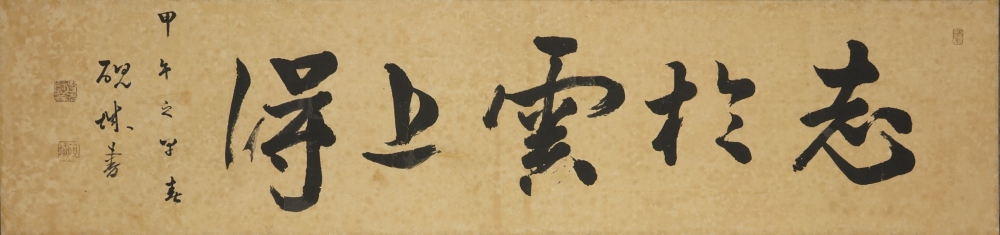 志於雲上得
甲午之早春
硯城書